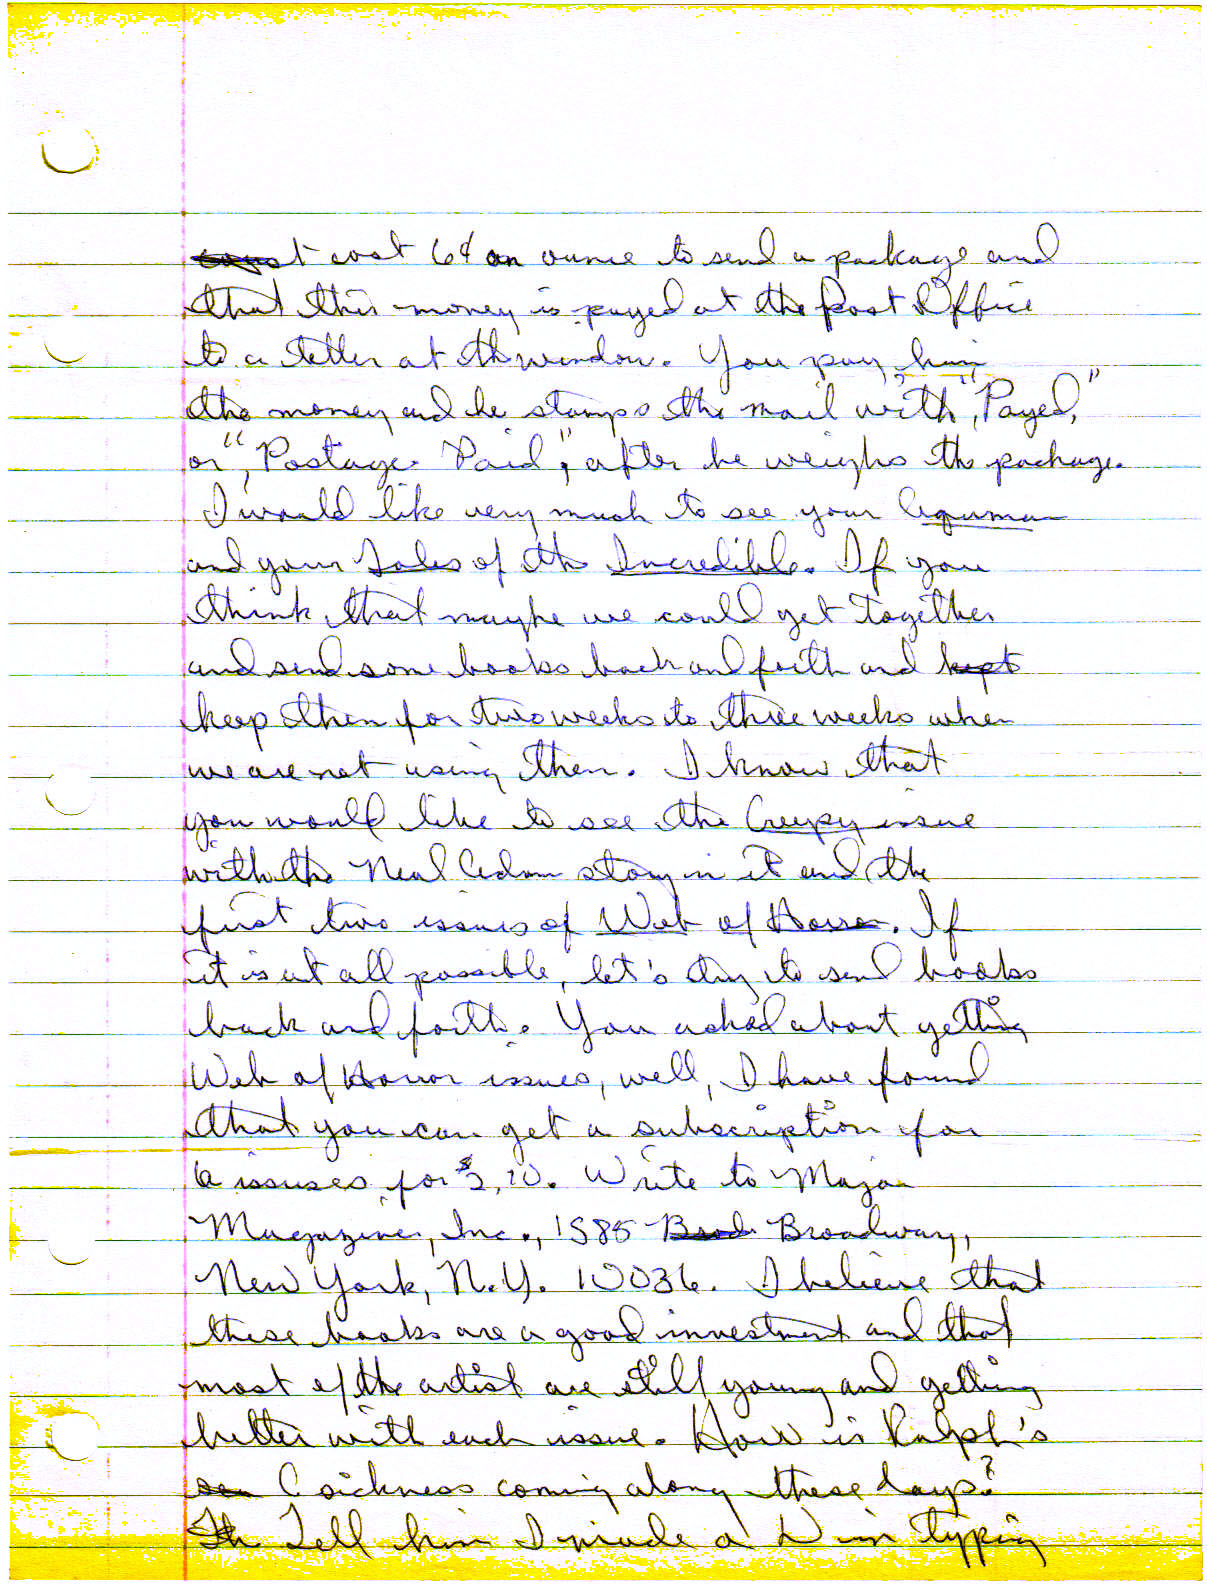 t cost 6¢ an ounce to send a package and
that this money is payed at the Post Office
to a teller at th window. You pay him
the money and he stamps the mail with, "Payed,"
or, "Postage Paid", after he weighs the package.
I would like very much to see your Aquaman
and your Tales of the Incredible. If you
think that maybe we could get together
and send some books back and forth and kept
keep them for two weeks to three weeks when
we are not using them. I know that
you would like to see the Creepy issue
with the Neal Adam story in it and the
first two issues of Web of Horror. If
it is at all possible, let's try to send books
back and forth. You asked about getting
Web of Horror issues, well, I have found
that you can get a subscription for
6 issuses for $2.10. Write to Major
Magazines, Inc., 1585 Broadway,
New York, N.Y. 10036. I believe that
these books are a good investment and that
most of the artist are still young and getting
better with each issue. How is Ralph's
C sickness coming along these days?
Tell him I made a D in typing